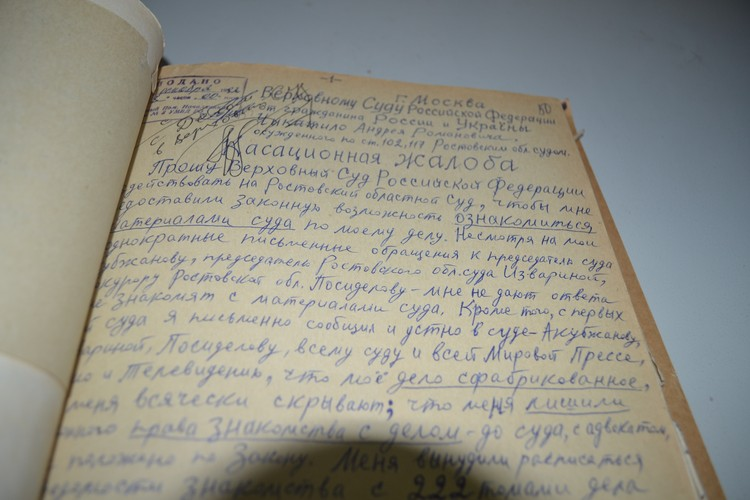 ПОДАНО
-1-
80
г. Москва
Верховному Суду Российской Федерации
от гражданина России и Украины
Чикатило Андрея Романовича
осужденного по ст. 102, 117 Ростовским обл. судом.
Кассационная жалоба
Прошу Верховный Суд Российской Федерации
здействовать на Ростовский областной суд, чтобы мне
доставили законную возможность ознакомиться
материалами суда по моему делу. Несмотря на мои
днократные письменные обращения к председателю суда
убжанову, председателю Ростовского обл. суда Извариной,
курору Ростовской обл. Посиделову - мне не дают ответа
е знакомят с материалами суда. Кроме того, с первых
суда я письменно сообщил и устно в суде - Акубжанову,
ариной, Посиделову, всему суду и всей Мировой Прессе,
о и Телевидению, что моё дело сфабрикованное,
меня всячески скрывают; что меня лишили
нного права знакомства с делом - до суда, с адвокатом,
положено по Закону. Меня вынудили расписаться
знакомства с 222 томами дела